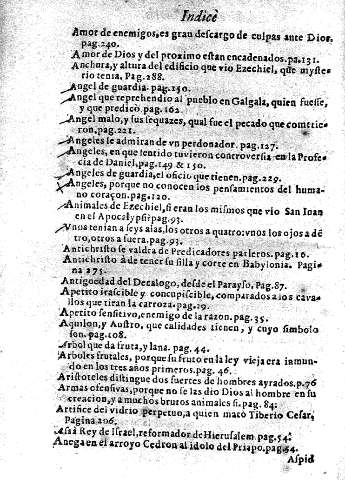 Indice
Amor de enemigos, es gran descargo de culpas ante Dios.
pag. 240.
Amor de Dios y del proximo estan encadenados. pa. 131.
Anchura, y altura del edificio que vio Ezechiel, que myste-
rio tenia, Pag. 288.
Angel de guardia. pag. 150.
Angel que reprehendio al pueblo en Galgala, quien fuesse,
y que predicò. pag. 162.
Angel malo, y sus sequazes, qual fue el pecado que cometie-
ron. pag. 221.
Angeles le admiran de vn perdonador. pag. 127.
Angeles, en que sentido tuvieron controversia en la Profe-
cia de Daniel, pag. 149 & 150.
Angeles de guardia, el oficio que tienen. pag. 229.
Angeles, porque no conocen los pensamientos del huma-
no coraçon. pag. 120.
Animales de Ezechiel, si eran los mismos que vio San Iuan
en el Apocalypsi? pag. 93.
Vnos tenian a seys alas, los otros a quatro: vnos los ojos a dē
tro, otros a fuera. pag. 93.
Antichristo se valdra de Predicadores parleros. pag. 16.
Antichristo à de tener su silla y corte en Babylonia. Pagi-
na 275.
Antiguedad del Decalogo, desde el Parayso, Pag. 87.
Apetito irascible y concupiscible, comparados a los cava-
llos que tiran la carroza. pag. 19.
Apetito sensitivo, enemigo de la razon. pag. 35.
Aquilon, y Austro, que calidades tienen, y cuyo simbolo
son. pag. 108.
Arbol que da fruta, y lana. pag. 44.
Arboles frutales, porque su fruto en la ley vieja era inmun-
do en los tres años primeros. pag. 46.
Aristoteles distingue dos suertes de hombres ayrados. p. 76
Armas ofensivas, porque no se las dio Dios al hombre en su
creacion, y a muchos brutos animales si. pag. 84:
Artifice del vidrio perpetuo, a quien mató Tiberio Cesar,
Pagina 206.
Asaá Rey de Israel, reformador de Hierusalem. pag. 54:
Anega en el arroyo Cedron al idolo del Priapo, pag. 54.
Aspid